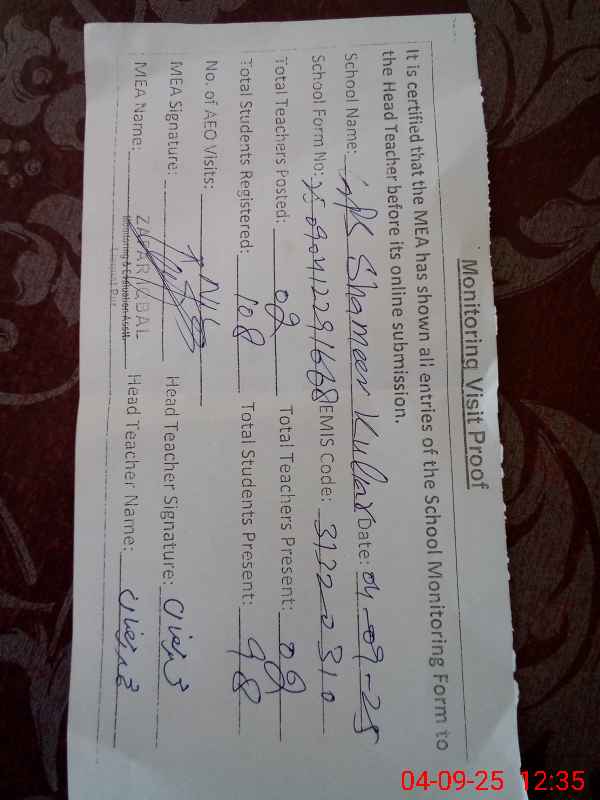 Monitoring Visit Proof
It is certified that the MEA has shown all entries of the School Monitoring Form to
the Head Teacher before its online submission.
School Name: GPS Shameer Kullar Date: 04-09-25
School Form No: EMIS Code: 31220310
Total Teachers Posted: 02 Total Teachers Present: 02
Total Students Registered: 108 Total Students Present: 98
No. of AEO Visits: Nil
MEA Signature: Head Teacher Signature:
MEA Name: ZAFAR IQBAL Head Teacher Name:
Monitoring & Evaluation Asstt.
04-09-25 12:35